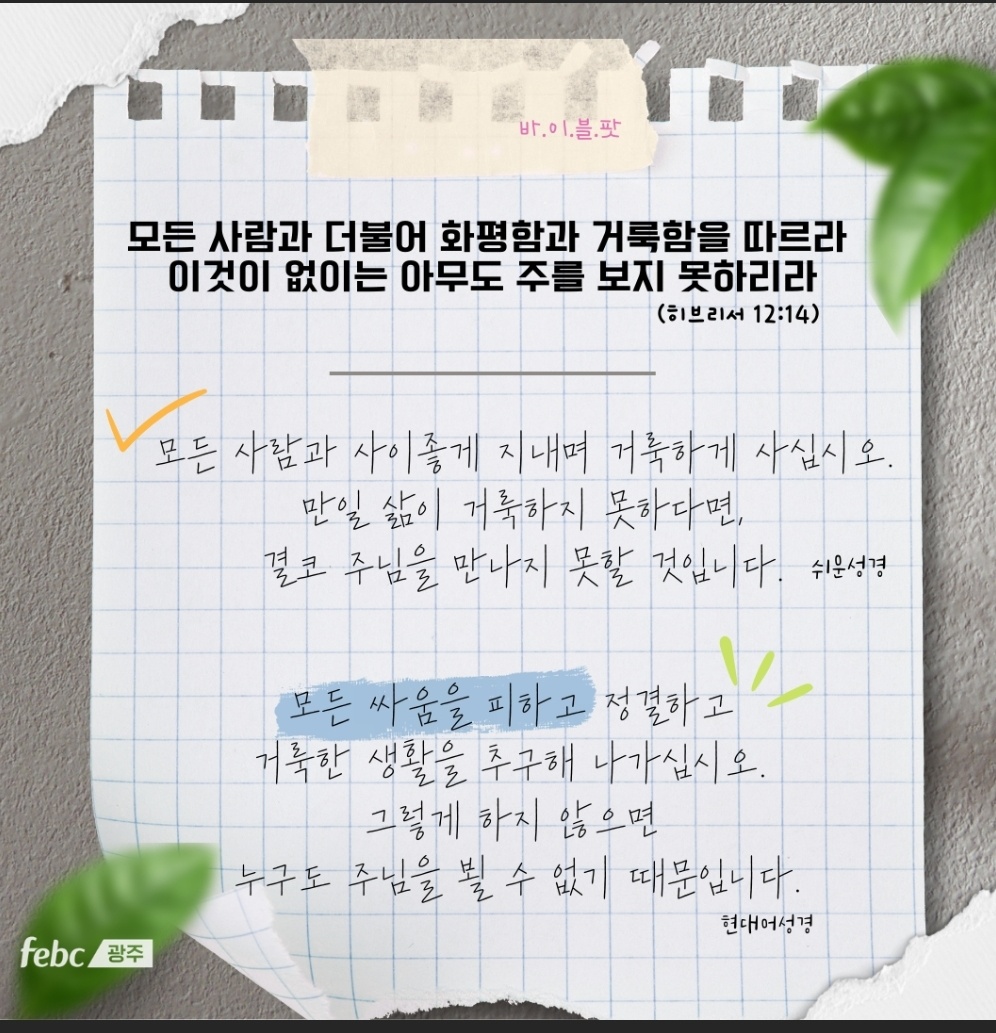 바.이.블.팟
모든 사람과 더불어 화평함과 거룩함을 따르라
이것이 없이는 아무도 주를 보지 못하리라
(히브리서 12:14)
모든 사람과 사이좋게 지내며 거룩하게 사십시오.
만일 삶이 거룩하지 못하다면,
결코 주님을 만나지 못할 것입니다. 쉬운성경
모든 싸움을 피하고 정결하고
거룩한 생활을 추구해 나가십시오.
그렇게 하지 않으면
누구도 주님을 뵐 수 없기 때문입니다.
현대어성경
febc 광주